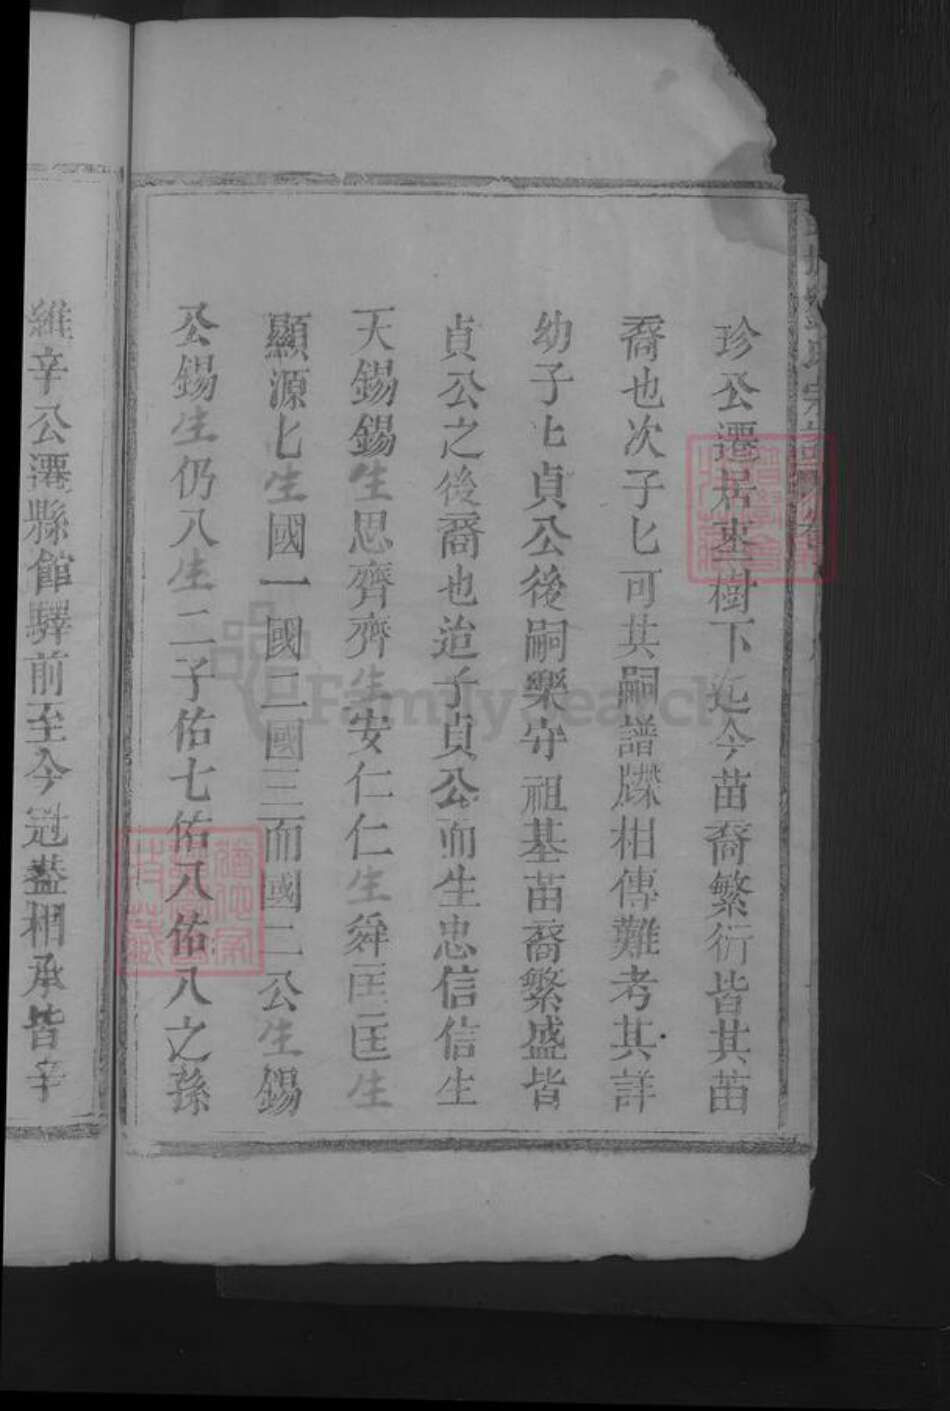 珍公遷居枣樹下迄今苗裔繁衍皆其苗
裔也次子匕可其嗣譜牒相傳難考其詳
幼子匕貞公後嗣樂守祖基苗裔繁盛皆
貞公之後裔也迨子貞公而生忠信信生
天錫錫生思齊齊生安仁仁生舜匡匡生
顯源匕生國一國二國三而國二公生錫
公錫生仍八生二子佑七佑八佑八之孫
維辛公遷縣館驛前至今冠盖相承皆辛
FamilySearch